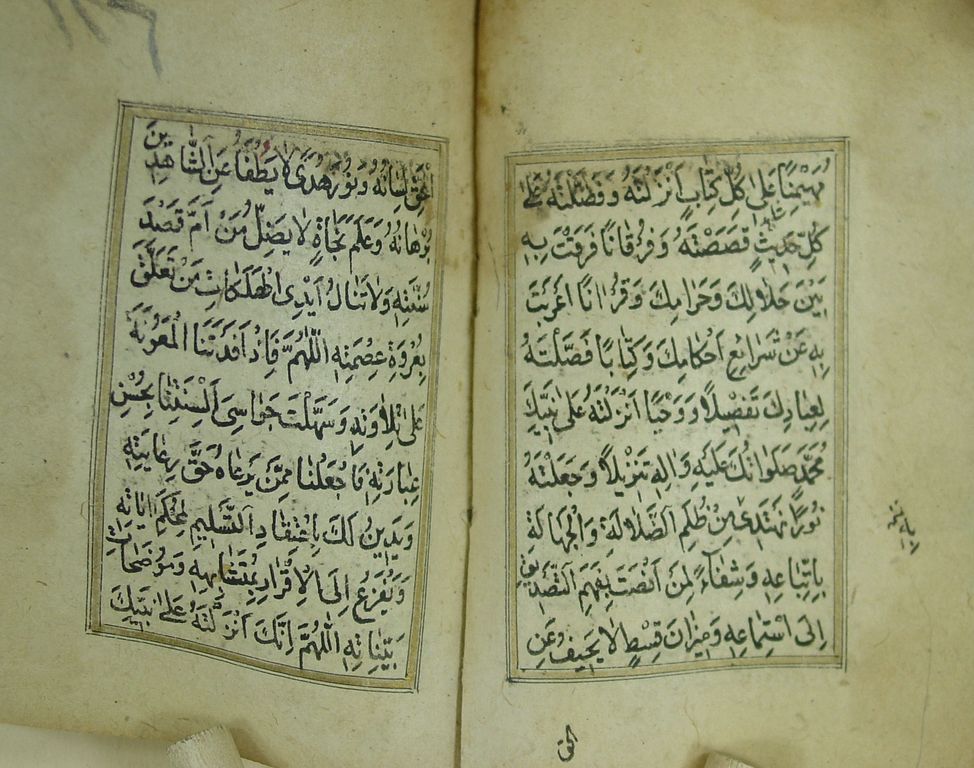 مُهَيْمِنًا عَلىٰ كُلِّ كِتَابٍ اَنْزَلْتَهُ وَفَضَّلْتَهُ عَلىٰ
كُلِّ حَدِيثٍ قَصَصْتَهُ وَفُرْقَانًا فَرَقْتَ بِهِ
بَيْنَ حَلَالِكَ وَحَرَامِكَ وَقُرْانًا اَعْرَبْتَ
بِهِ عَنْ شَرَايِعِ اَحْكَامِكَ وَكِتَابًا فَصَّلْتَهُ
لِعِبَادِكَ تَفْصِيلًا وَوَحْيًا اَنْزَلْتَهُ عَلىٰ نَبِيِّكَ
مُحَمَّدٍ صَلَوَاتُكَ عَلَيْهِ وَالِهِ تَنْزِيلًا وَجَعَلْتَهُ
نُورًا نَهْتَدِي مِنْ ظُلَمِ الضَّلَالَةِ وَالْجَهَالَةِ
بِاتِّبَاعِهِ وَشِفَاءً لِمَنْ اَنْصَتَ بِفَهَمِ التَّصْدِيقِ
اِلَى اسْتِمَاعِهِ وَمِيزَانَ قِسْطٍ لَا يَحِيفُ عَنِ
الحق
الْحَقِّ لِسَانُهُ وَنُورَ هُدًى لَا يَطْفَأُ عَنِ الشَّاهِدِينَ
بُرْهَانُهُ وَعَلَمَ نَجَاةٍ لَا يَضِلُّ مَنْ اَمَّ قَصْدَ
سُنَّتِهِ وَلَا تَنَالُ اَيْدِي الْهَلَكَاتِ مَنْ تَعَلَّقَ
بِعُرْوَةِ عِصْمَتِهِ اَللّٰهُمَّ فَاِذْ اَفَدْتَنَا الْمَعُونَةَ
عَلىٰ تِلَاوَتِهِ وَسَهَّلْتَ جَوَاسِيَ اَلْسِنَتِنَا بِحُسْنِ
عِبَارَتِهِ فَاجْعَلْنَا مِمَّنْ يَرْعَاهُ حَقَّ رِعَايَتِهِ
وَيَدِينُ لَكَ بِاعْتِقَادِ التَّسْلِيمِ لِمُحْكَمِ ايَاتِهِ
وَيَفْزَعُ اِلَى الْاِقْرَارِ بِمُتَشَابِهِهِ وَمُوضَحَاتِ
بَيِّنَاتِهِ اَللّٰهُمَّ اِنَّكَ اَنْزَلْتَهُ عَلىٰ نَبِيِّكَ